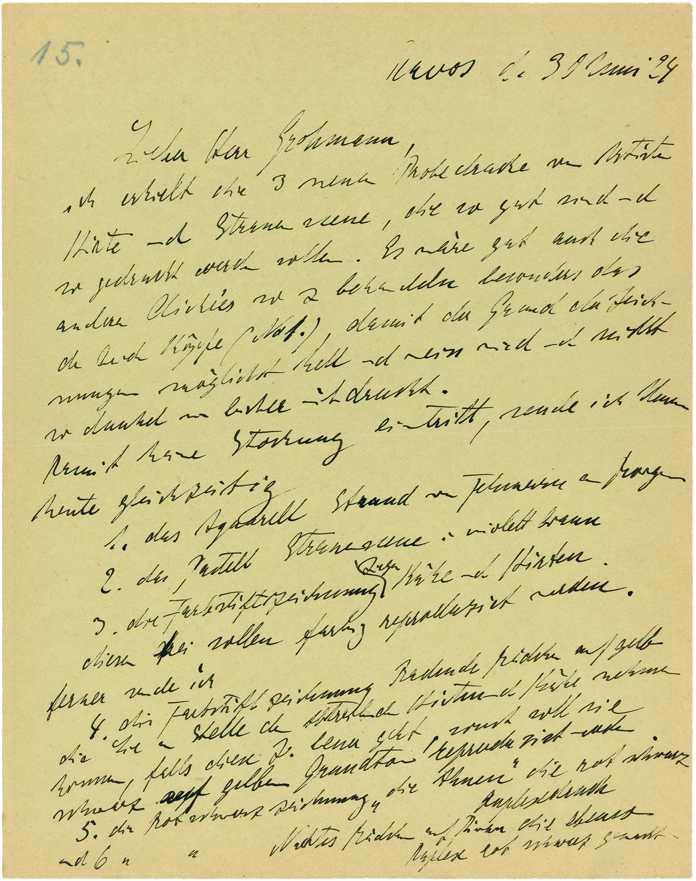 15.
Davos d. 30 Juni 24
Lieber Herr Grohmann,
ich erhielt die 3 neuen Probedrucke von
Hirte und Strassenscene, die so gut sind und
so gedruckt werden sollen. Es wäre gut auch die
andern Clichées so z behandeln besonders das
der Köpfe (No 1.), damit der Grund der Zeich-
nungen möglichst hell und rein wird und nicht
so dunkel wie bisher mitdruckt.
Damit keine Stockung eintritt, sende ich Ihnen
heute gleichzeitig
1. das Aquarell Strand von Fehmarn am Morgen
2. das Pastell Strassenscene i violett braun
3. die Farbstiftzeichnung Ziegen Kühe und Hirten.
diese drei sollen farbig reproduziert werden.
ferner sende ich
4. die Farbstiftzeichnung Badende Mädchen auf gelb
die Sie an Stelle der Hirten und Kühe nehmen
können, falls diese z. Jena geht, sonst soll sie
schwarz auf gelben Grundton reproduziert werden
5. die Rotschwarzzeichnung „die Ahnen" die rot schwarz
Duplexdruck
und 6 " " Nacktes Mädchen auf Divan die ebenso
Duplex rot schwarz gemacht